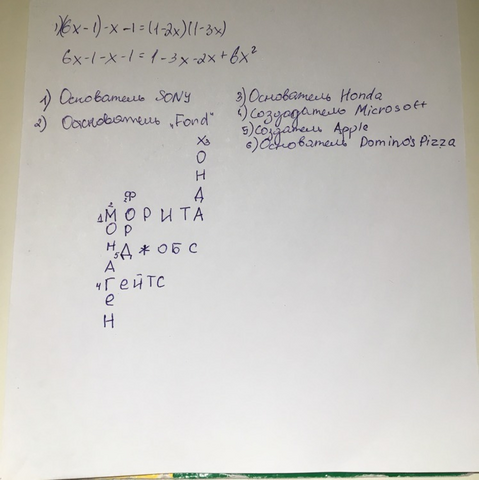 1)(6x-1)-x-1=(1-2x)(1-3x)
6x-1-x-1=1-3x-2x+6x²
1) Основатель SONY
2) Оснοватель „Fond"
3) Основатель Honda
4) Создадатель Microsoft
5) Создатель Apple
6) Основатель Domino's Pizza
Х3
О
Н
Ф Д
1 2 М О Р И Т А
О Р
Н 5 Д Ж О Б С
А
4 Г е Й Т С
е
Н